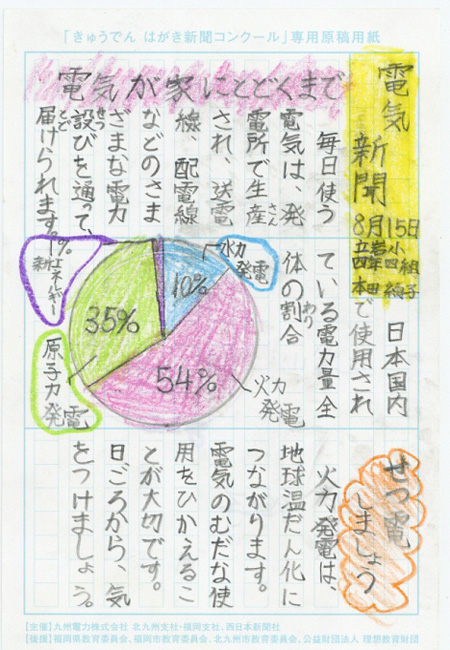 「きゅうでん はがき新聞コンクール」専用原稿用紙
電気新聞
8月15日
本田
電気が家にとどくまで
毎日使う
電気は、発
電所で生産
さん
され、送電
線、配電線
などのさま
ざまな電力
設びを通って、
せつ
届けられます。
とど
日本国内
で使用され
ている電力量全
体の割合
わり
水力
発電
10%
火力
発電
54%
原子力
発電
35%
新エネルギー
1%
せつ電
しましょう
火力発電は、
地球温だん化に
つながります。
電気のむだな使
用をひかえるこ
とが大切です。
日ごろから、気
をつけましょう。
【主催】九州電力株式会社 北九州支社・福岡支社、西日本新聞社
【後援】福岡県教育委員会、福岡市教育委員会、北九州市教育委員会、公益財団法人 理想教育財団